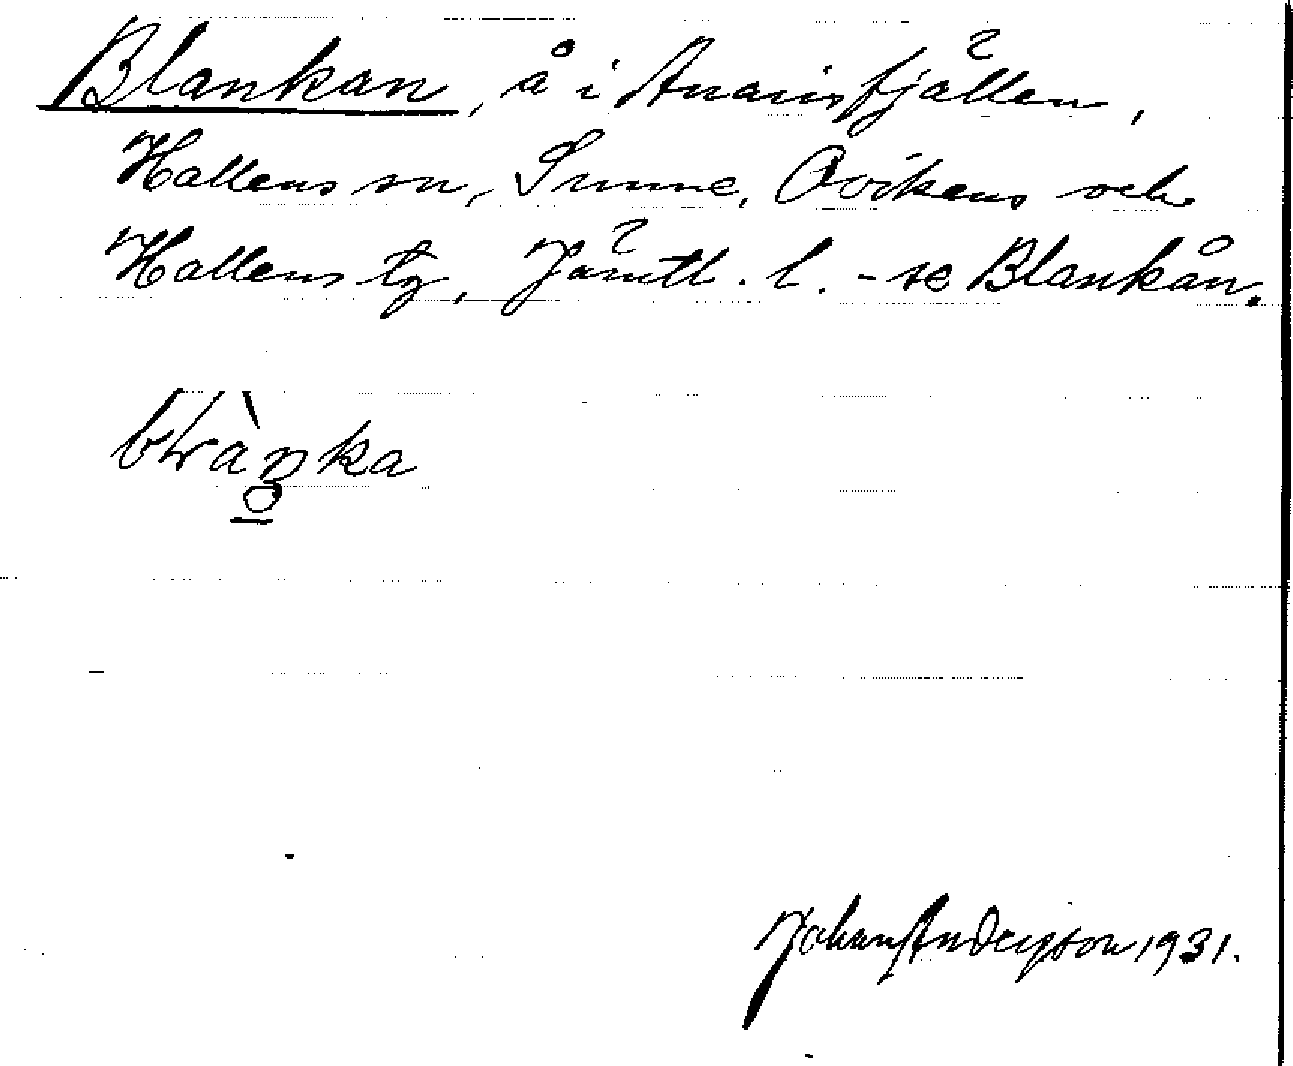 Blankan, å i Anarisfjällen,
Hallens sn, Sunne, Ovikens och
Hallens tg, Jämtl. l. - se Blankån.
Johan Anderson 1931.